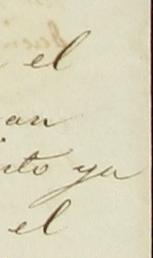 el
an
ito ya
el